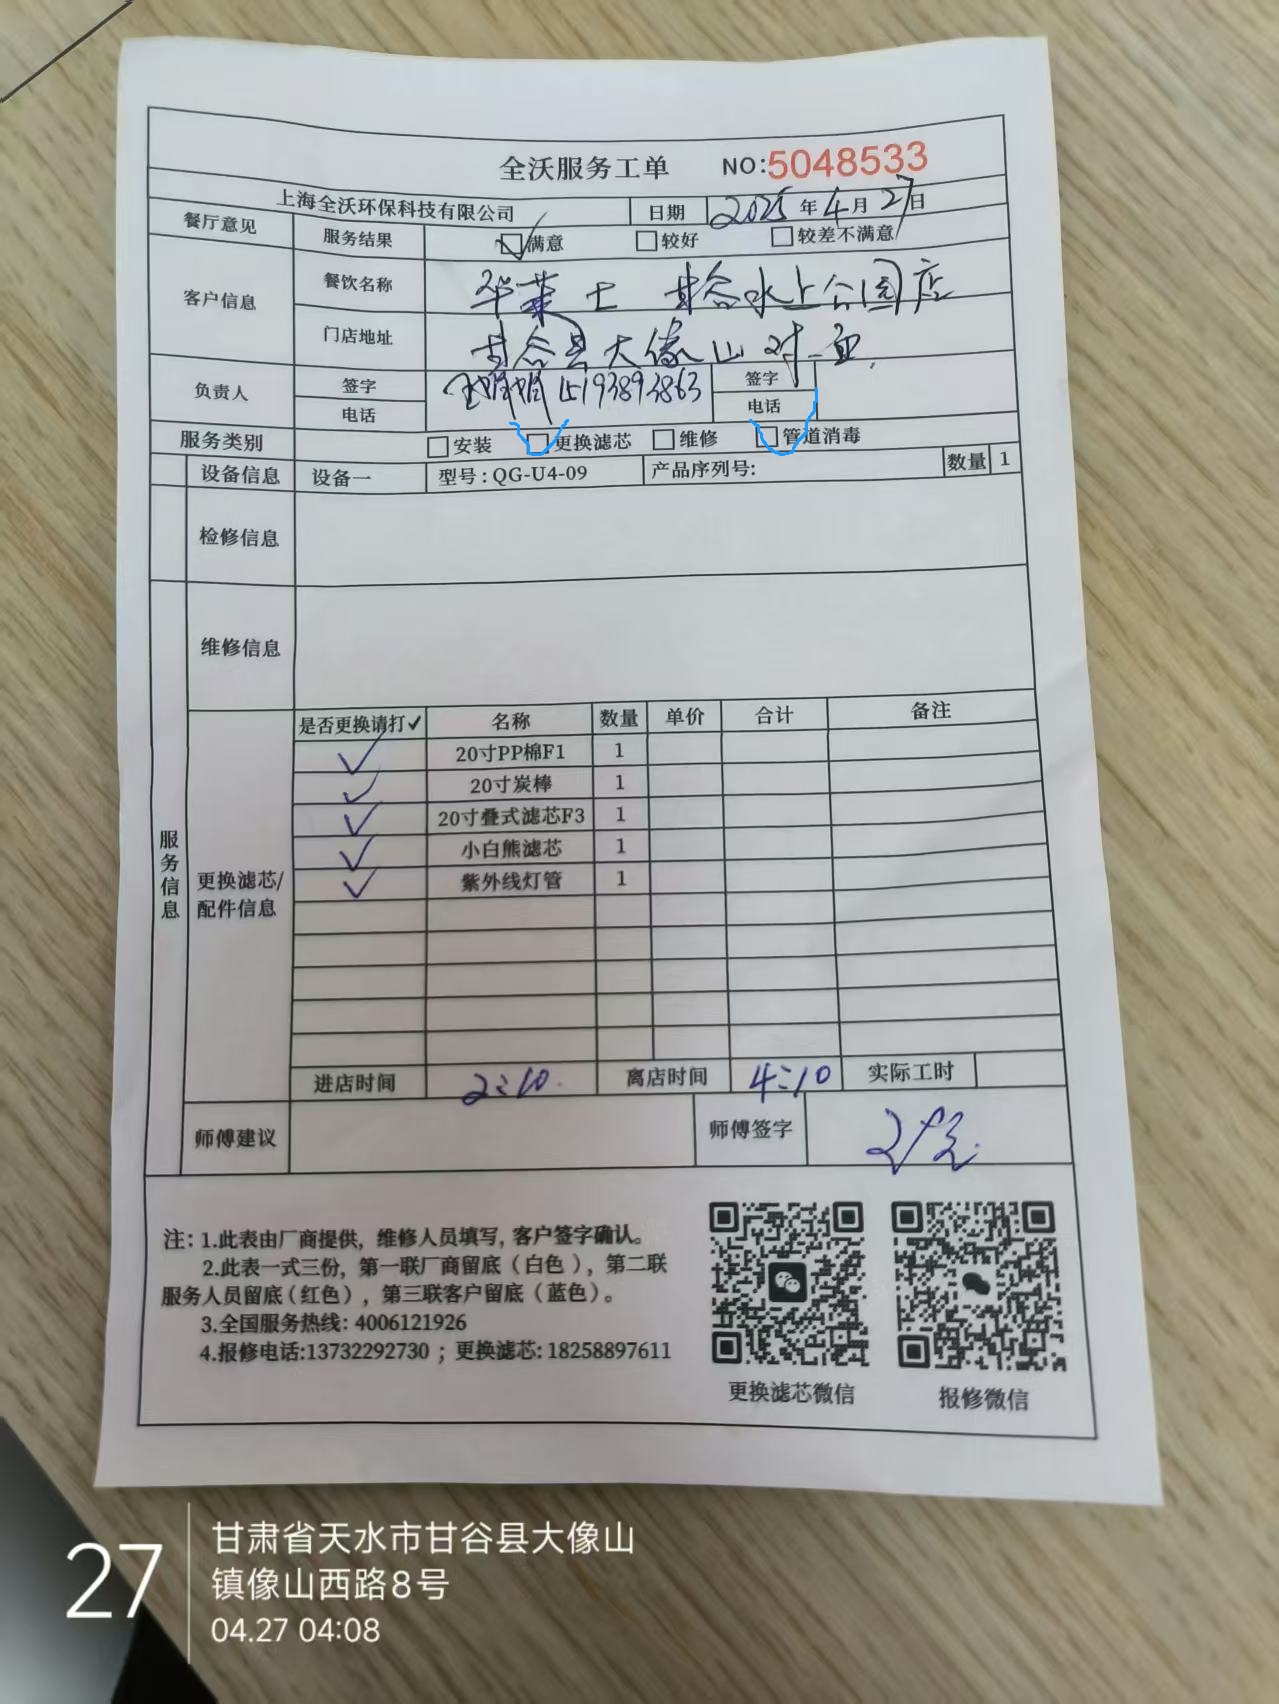 全沃服务工单 NO:5048533
上海全沃环保科技有限公司 日期 2025年4月27日
餐厅意见 服务结果 ☑满意 □较好 □较差不满意
客户信息 餐饮名称 华莱士 甘谷水上公园店
门店地址 甘谷县大像山对面
负责人 签字 签字
电话 电话
服务类别 □安装 ☑更换滤芯 □维修 ☑管道消毒
设备信息 设备一 型号:QG-U4-09 产品序列号: 数量 1
检修信息
维修信息
服务信息
更换滤芯/配件信息
是否更换请打✓ 名称 数量 单价 合计 备注
✓ 20寸PP棉F1 1
✓ 20寸炭棒 1
✓ 20寸叠式滤芯F3 1
✓ 小白熊滤芯 1
✓ 紫外线灯管 1
进店时间 2:10 离店时间 4:10 实际工时
师傅建议 师傅签字
注:1.此表由厂商提供,维修人员填写,客户签字确认。
2.此表一式三份,第一联厂商留底(白色),第二联
服务人员留底(红色),第三联客户留底(蓝色)。
3.全国服务热线:4006121926
4.报修电话:13732292730;更换滤芯:18258897611
更换滤芯微信 报修微信
27
甘肃省天水市甘谷县大像山
镇像山西路8号
04.27 04:08